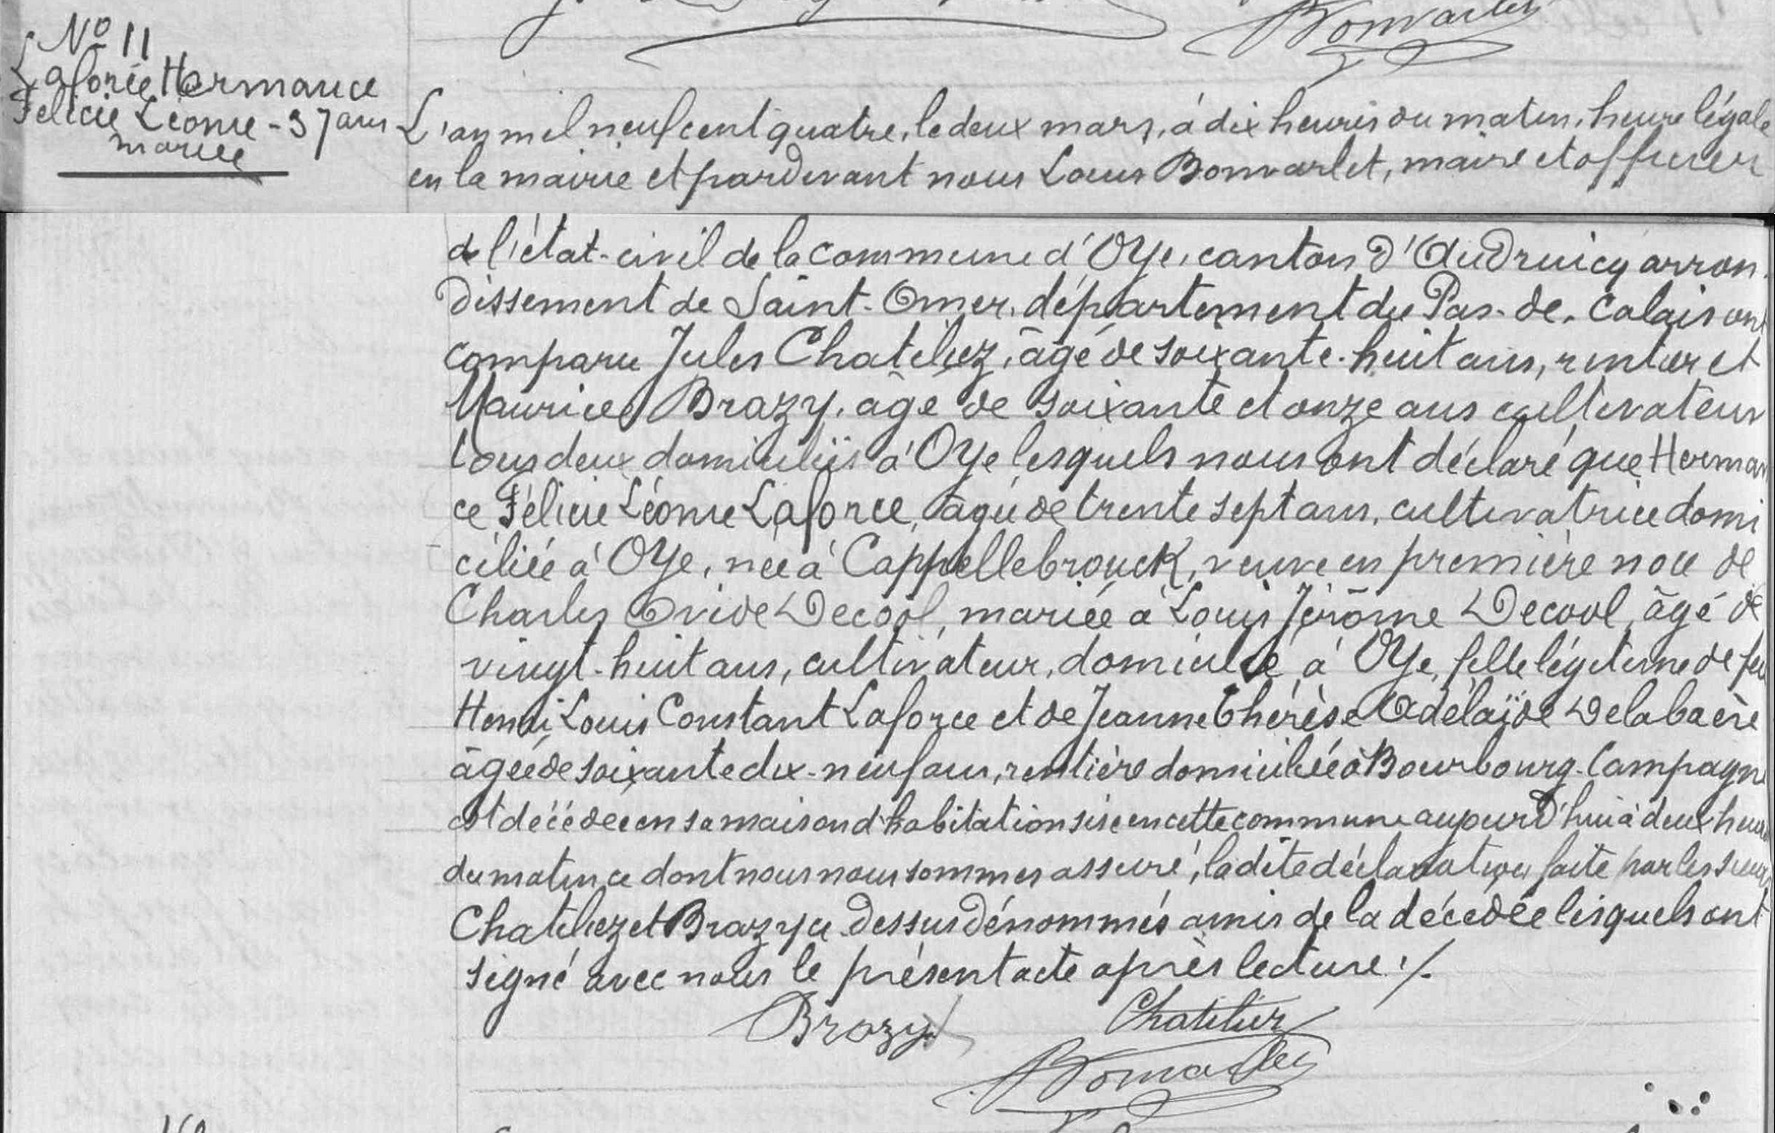 Bonvarlet
No 11
Laforce Hermance
Félicie Léonie - 37 ans
mariée
L'an mil neuf cent quatre, le deux mars, à dix heures du matin, heure légale
en la mairie et pardevant nous Louis Bonvarlet, maire et officier
de l'état-civil de la commune d'Oye, canton d'Audruicq arron
dissement de Saint-Omer, département du Pas-de-Calais ont
comparu Jules Chatelez, âgé de soixante-huit ans, rentier et
Maurice Brazy, âgé de soixante et onze ans cultivateur
tous deux domiciliés à Oye lesquels nous ont déclaré que Herman
ce Félicie Léonie Laforce, âgée de trente sept ans, cultivatrice domi
ciliée à Oye, née à Cappellebrouck, veuve en première noce de
Charles Ovide Decool, mariée à Louis Jérôme Decool, âgé de
vingt-huit ans, cultivateur, domicilié à Oye, fille légitime de feu
Henri Louis Constant Laforce et de Jeanne Thérèse Adélaïde Delabaère
âgée de soixante dix-neuf ans, rentière domiciliée à Bourbourg-Campagne
est décédée en sa maison d'habitation sise en cette commune aujourd'hui à deux heures
du matin ce dont nous nous sommes assuré, la dite déclaration faite par les sieurs
Chatelez et Brazy ci-dessus dénommés amis de la décédée lesquels ont
signé avec nous le présent acte après lecture ./.
Brazy Chatelez
Bonvarlet